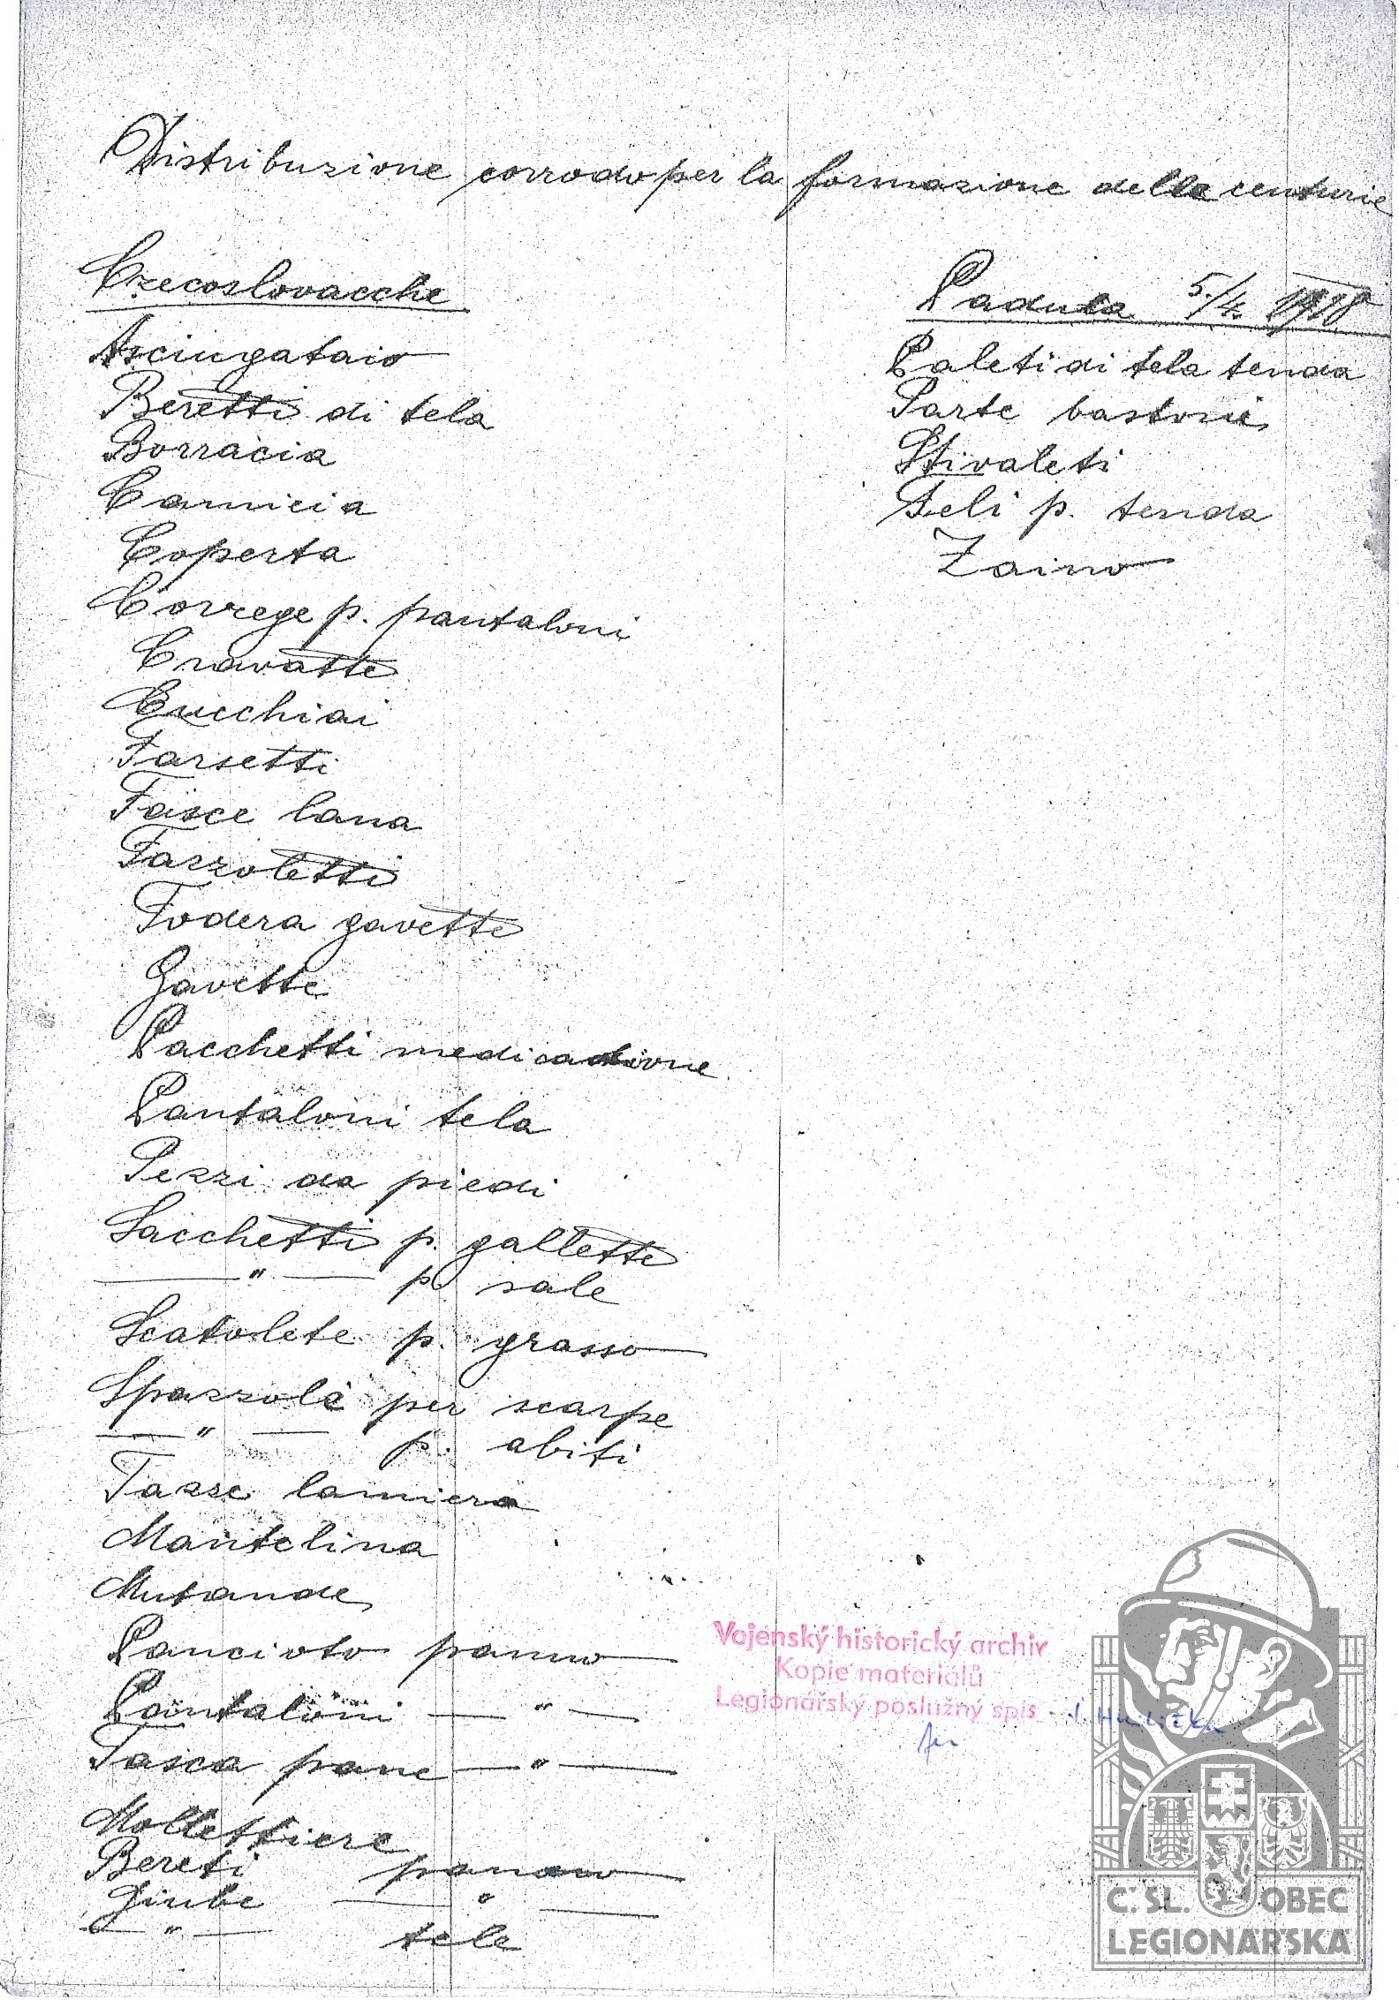 Distribuzione corrodo per la formazione delle centurie
Czecoslovacche
Asciugataio
Beretti di tela
Borracia
Camicia
Coperta
Correge p. pantaloni
Cravatte
Cucchiai
Farsetti
Faisce lana
Fazzoletti
Fodera gavette
Gavette
Pacchetti medicadione
Pantaloni tela
Pezzi da piedi
Sacchetti p. gallette
— " — p. sale
Scatolete p. grasso
Spazzole per scarpe
— " — p. abiti
Tazze lamiera
Mantelina
Mutande
Pancioto panno
Pantaloni — " —
Tasca pane — " —
Mollettiere
Bereti panno
Giube — " —
— " — tele
Padula 5./4. 1918
Paleti di tela tenda
Parte bastone
Stivaleti
Teli p. tenda
Zaino
Vojenský historický archiv
Kopie materiálů
Legionářský poslužný spis - J. Hudička
Č. SL. OBEC
LEGIONÁŘSKÁ